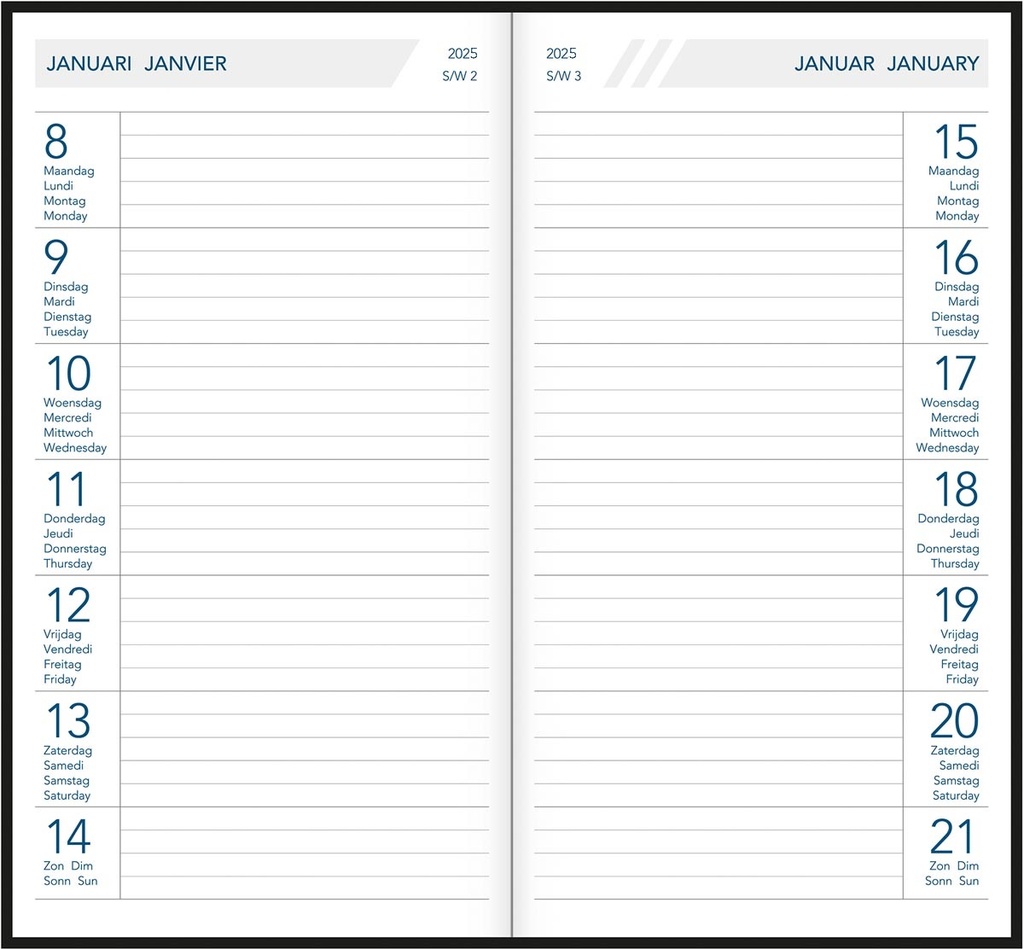 JANUARI JANVIER
2025
S/W 2
8
Maandag
Lundi
Montag
Monday
9
Dinsdag
Mardi
Dienstag
Tuesday
10
Woensdag
Mercredi
Mittwoch
Wednesday
11
Donderdag
Jeudi
Donnerstag
Thursday
12
Vrijdag
Vendredi
Freitag
Friday
13
Zaterdag
Samedi
Samstag
Saturday
14
Zon Dim
Sonn Sun
2025
S/W 3
JANUAR JANUARY
15
Maandag
Lundi
Montag
Monday
16
Dinsdag
Mardi
Dienstag
Tuesday
17
Woensdag
Mercredi
Mittwoch
Wednesday
18
Donderdag
Jeudi
Donnerstag
Thursday
19
Vrijdag
Vendredi
Freitag
Friday
20
Zaterdag
Samedi
Samstag
Saturday
21
Zon Dim
Sonn Sun